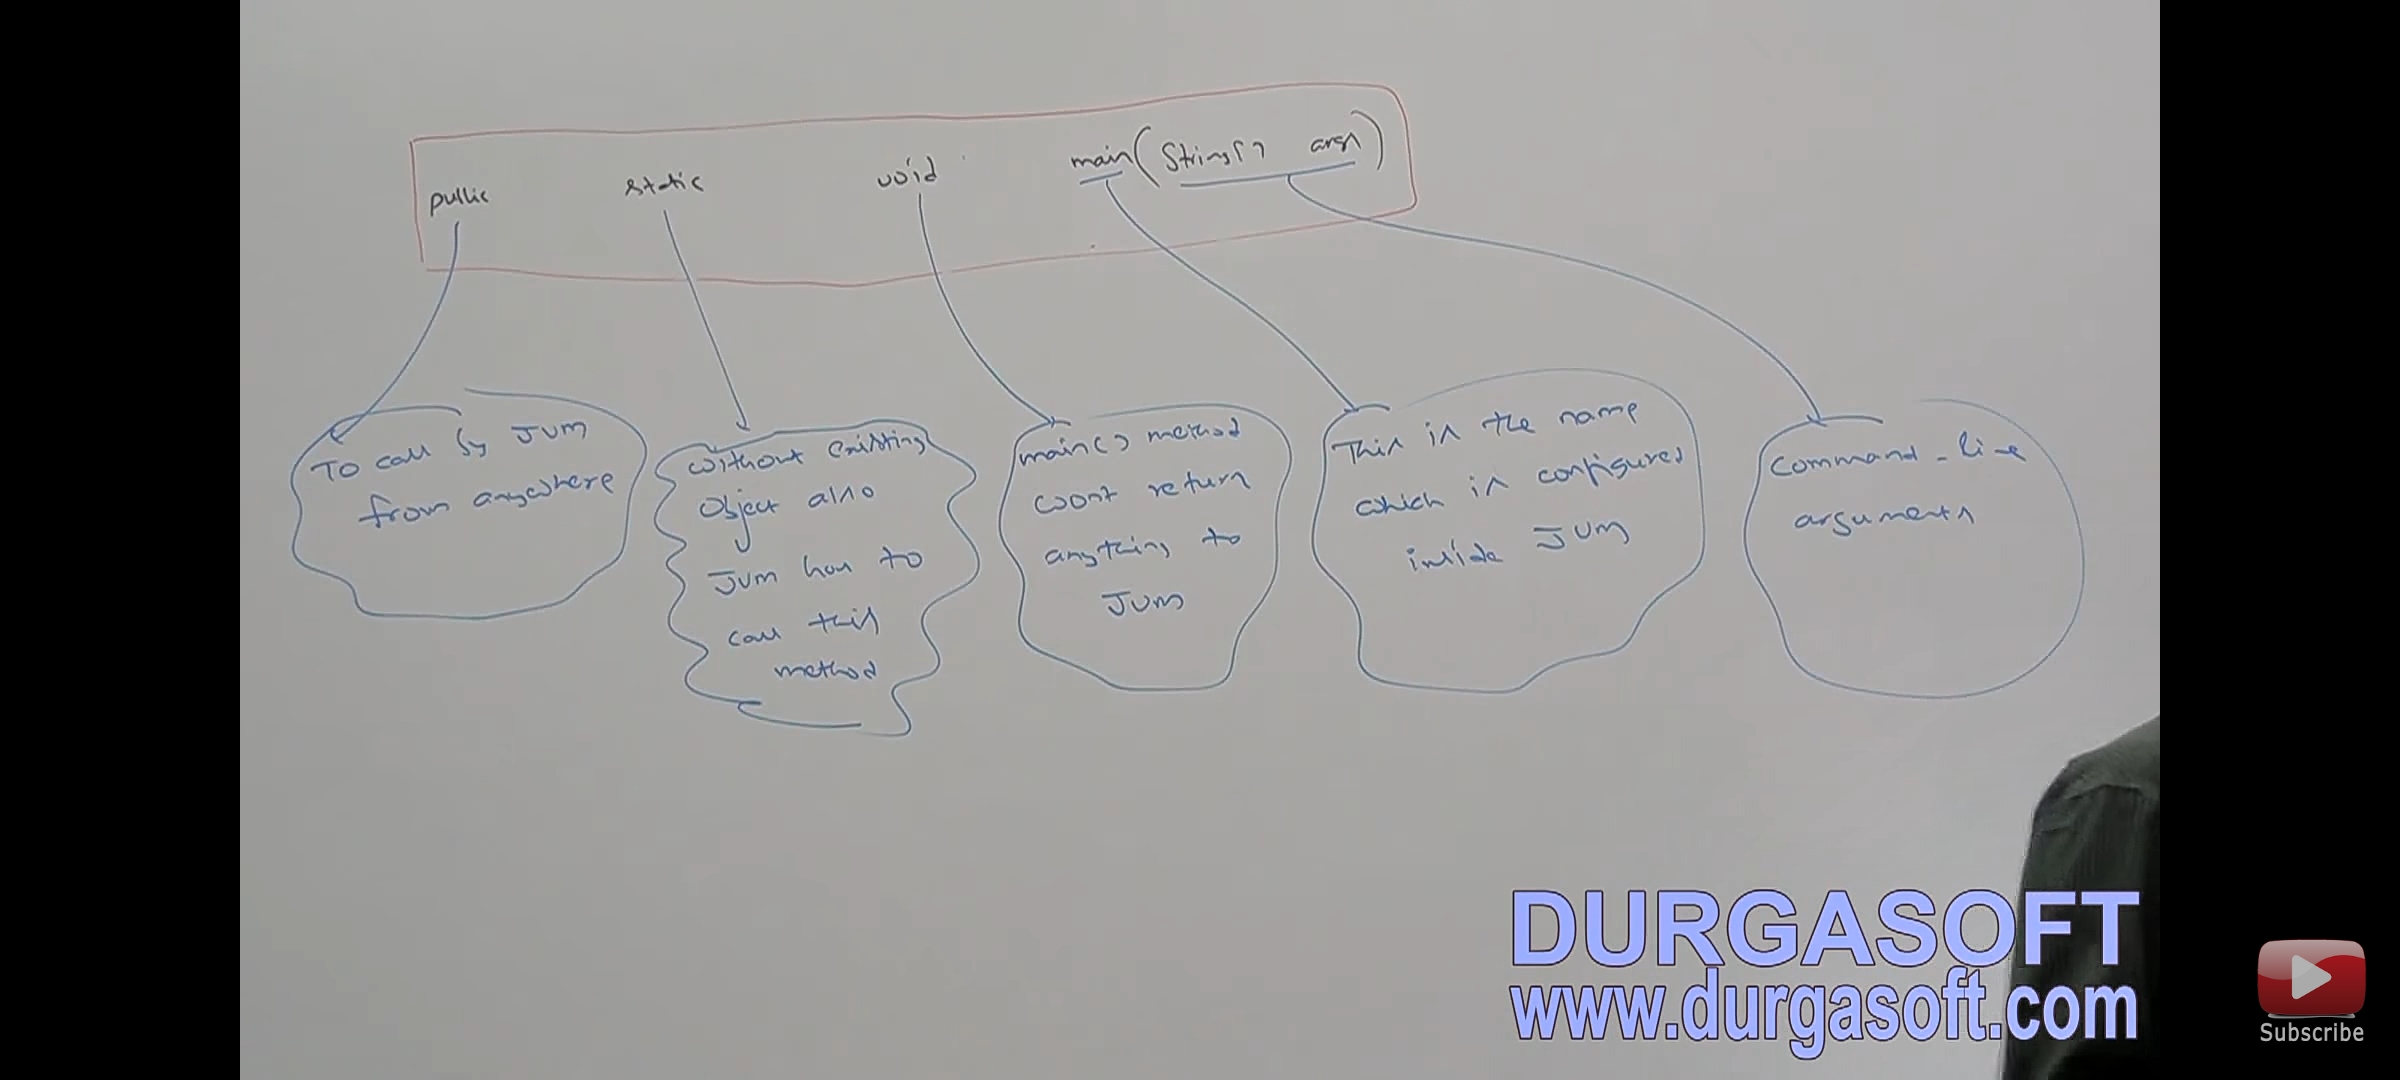 public static void main(String[] args)
To call by JVM
from anywhere
without existing
Object also
JVM has to
call this
method
main() method
wont return
anything to
JVM
This is the name
which is configured
inside JVM
Command-line
arguments
DURGASOFT
www.durgasoft.com
Subscribe